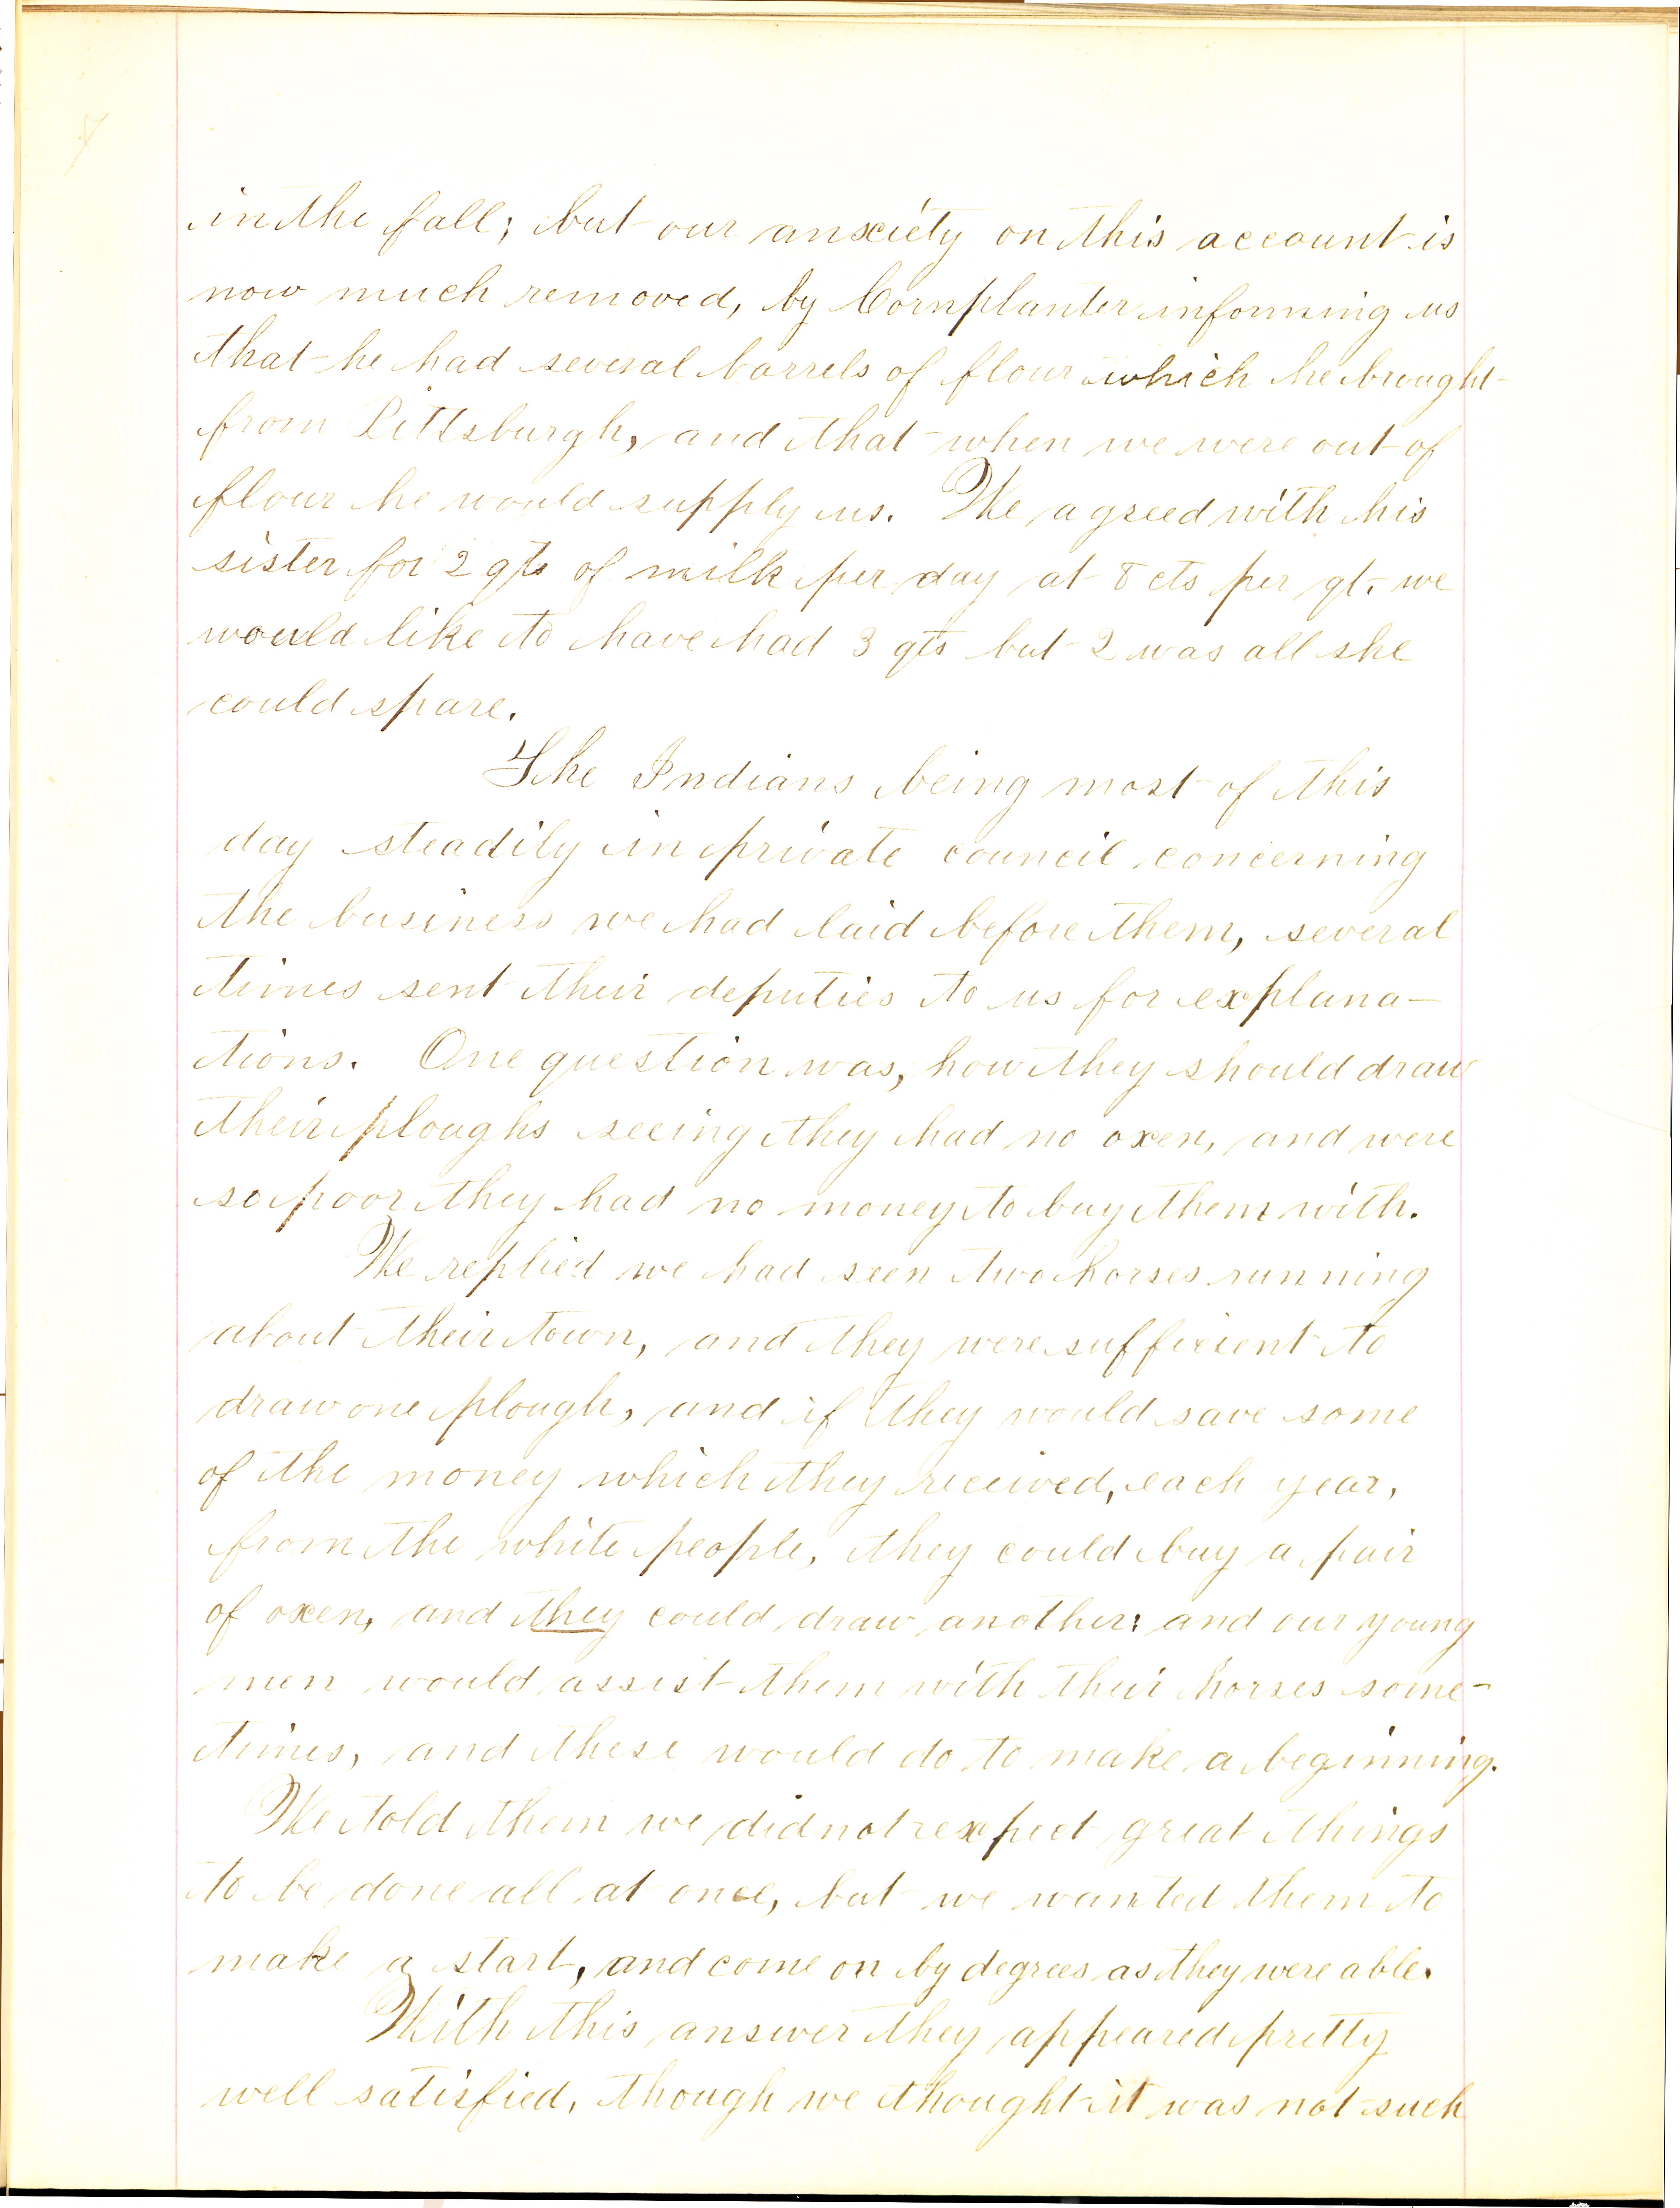 in the fall; but our anxiety on this account is
now much removed, by Cornplanter informing us
that he had several barrels of flour which he brought
from Pittsburgh, and that when we were out of
flour he would supply us. We agreed with his
sister for 2 qts of milk per day at 8 cts per qt. we
would like to have had 3 qts but 2 was all she
could spare.
The Indians being most of this
day steadily in private council concerning
the business we had laid before them, several
times sent their deputies to us for explana-
tions. One question was, how they should draw
their ploughs seeing they had no oxen, and were
so poor they had no money to buy them with.
We replied we had seen two horses running
about their town, and they were sufficient to
draw one plough, and if they would save some
of the money which they received, each year,
from the white people, they could buy a pair
of oxen, and they could draw another; and our young
men would assist them with their horses some-
times, and these would do to make a beginning.
We told them we did not expect great things
to be done all at once, but we wanted them to
make a start, and come on by degrees as they were able.
With this answer they appeared pretty
well satisfied, though we thought it was not such